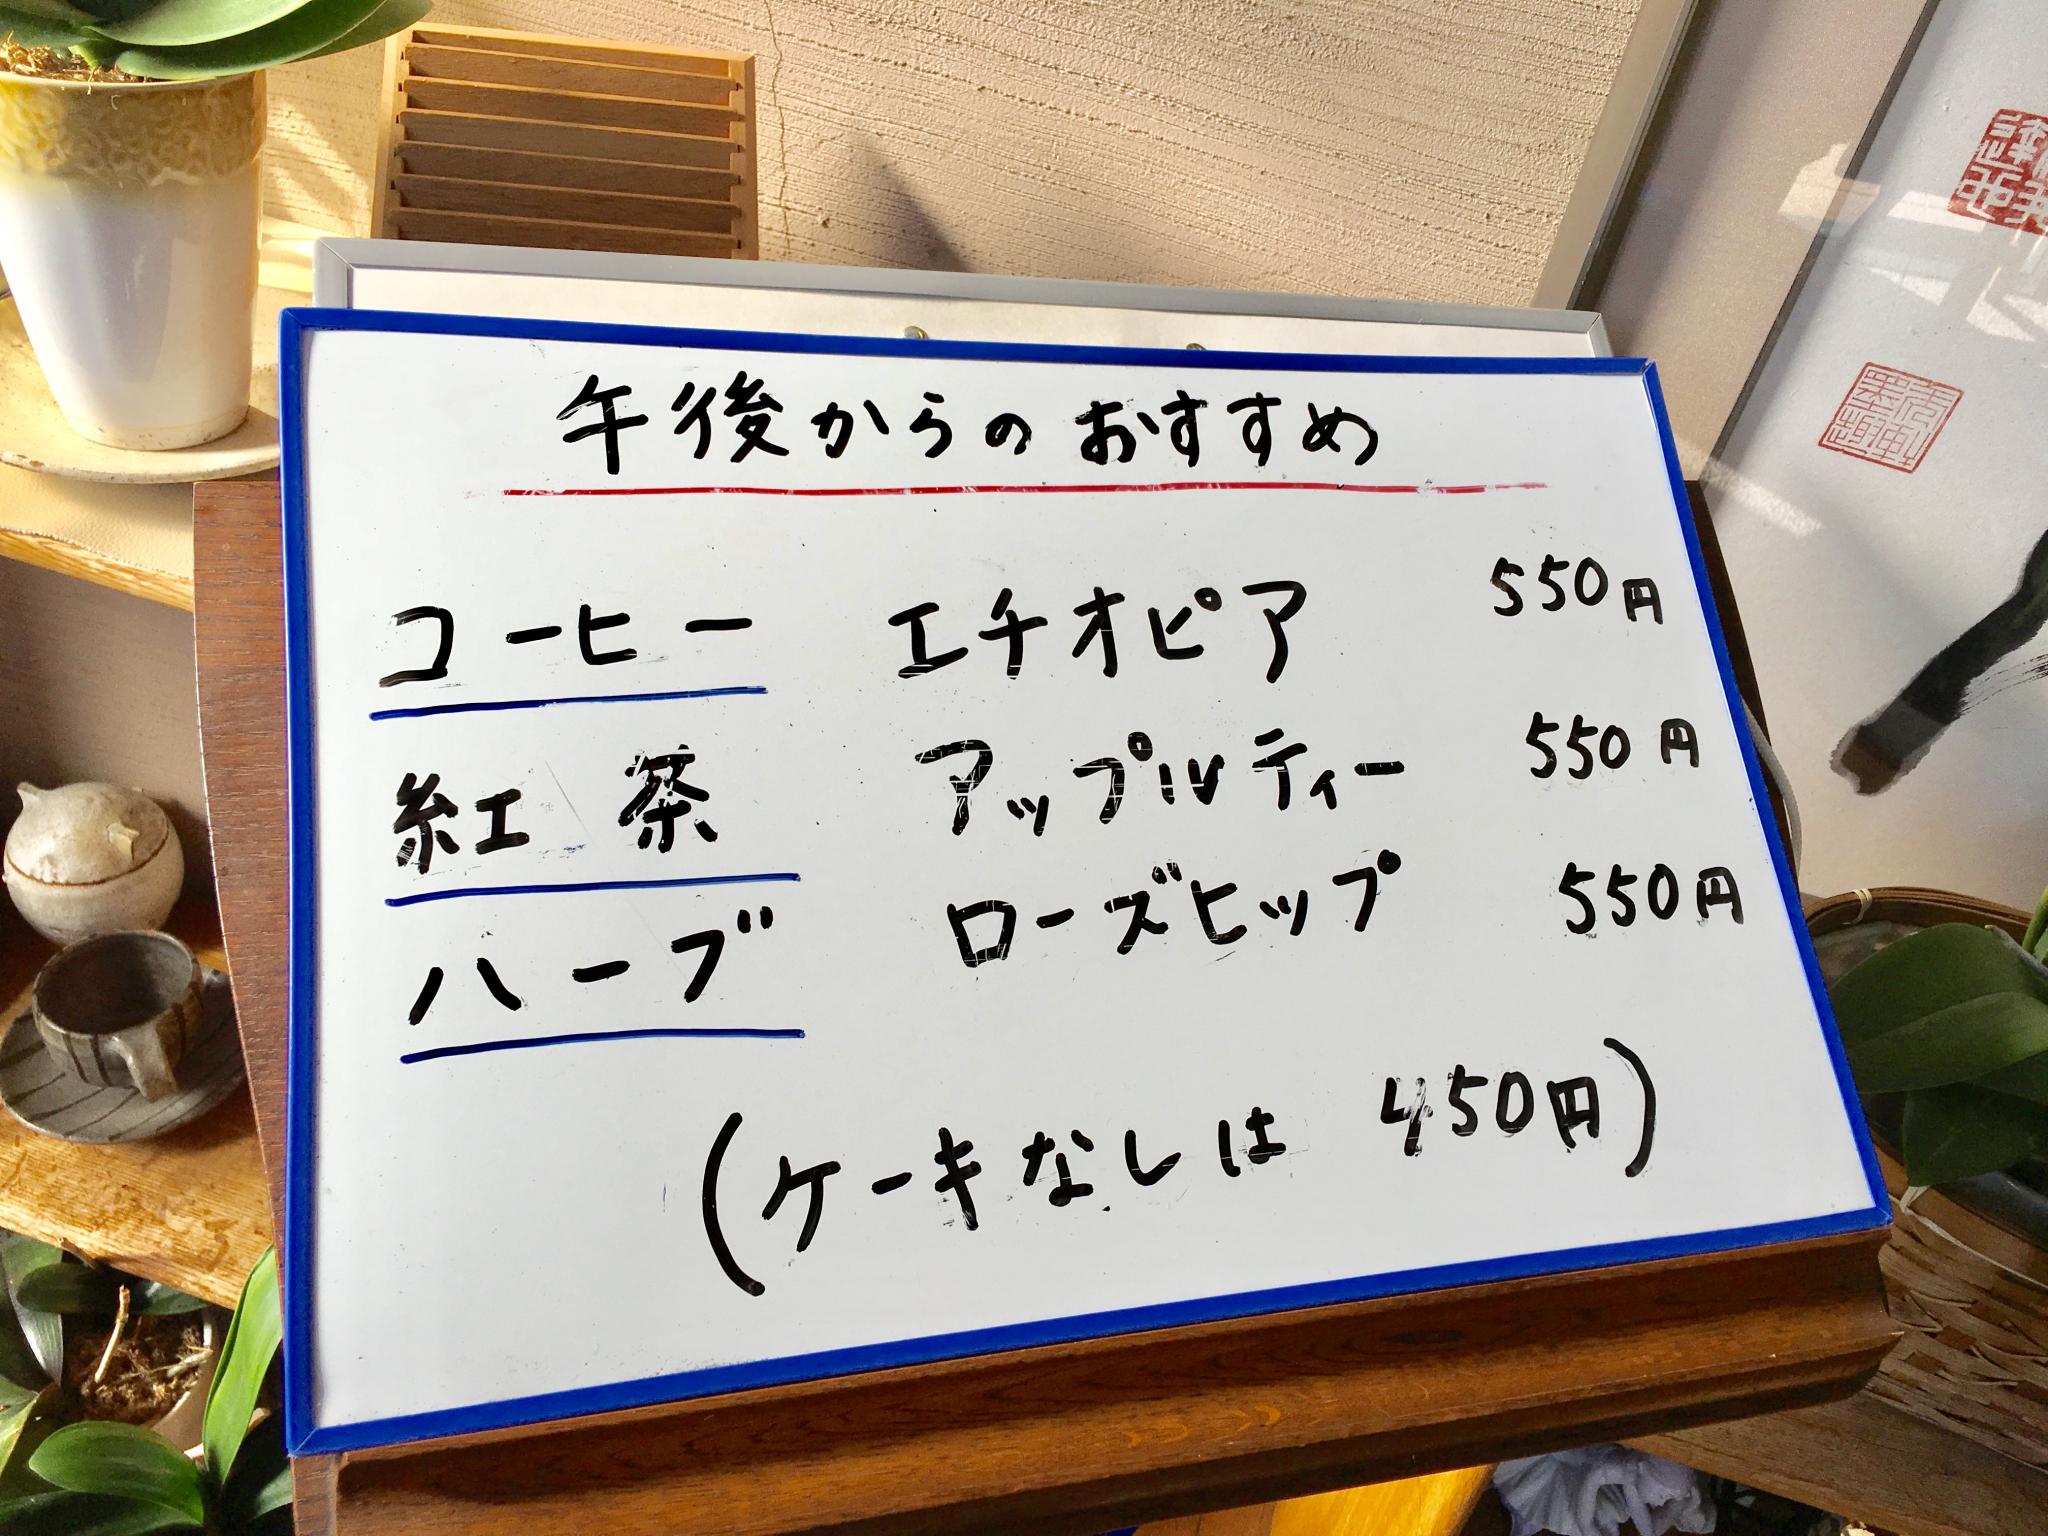 午後からのおすすめ
コーヒー エチオピア 550円
紅茶 アップルティー 550円
ハーブ ローズヒップ 550円
(ケーキなしは 450円)